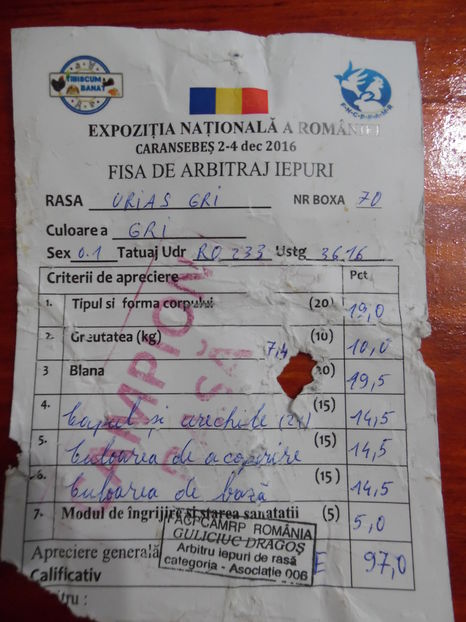 TIBISCUM BANAT
F-N-C-P-P-A-M-R
EXPOZIȚIA NAȚIONALĂ A ROMÂNIEI
CARANSEBEȘ 2-4 dec 2016
FISA DE ARBITRAJ IEPURI
RASA URIAS GRI NR BOXA 70
Culoarea GRI
Sex 0.1 Tatuaj Udr RO 233 Ustg 3616
Criterii de apreciere Pct
1. Tipul si forma corpului (20) 19,0
2. Greutatea (kg) 7,4 (10) 10,0
3 Blana 20) 19,5
4. Capul și urechile (21) (15) 14,5
5. Culoarea de acoperire (15) 14,5
6. Culoarea de bază (15) 14,5
7- Modul de îngrijire si starea sanatatii (5) 5,0
Apreciere generală E 97,0
Calificativ
CAMPION
RASĂ
ACPCAMRP ROMÂNIA
GULICIUC DRAGOȘ
Arbitru iepuri de rasă
categoria - Asociație 006